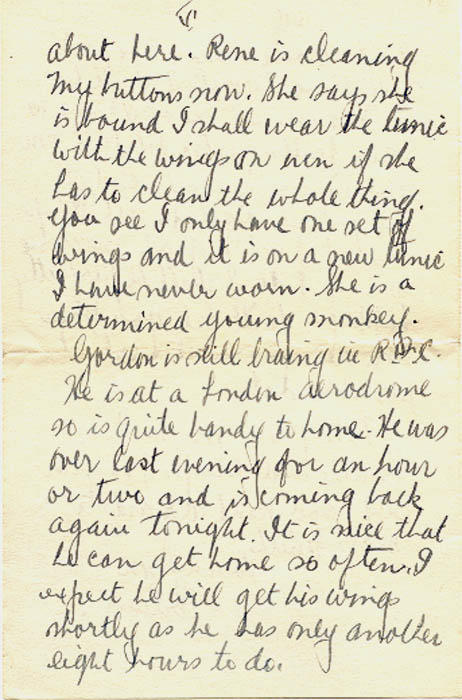 V
about here. Rene is cleaning
my buttons now. She says she
is bound I shall wear the tunic
with the wings on even if she
has to clean the whole thing.
You see I only have one set of
wings and it is on a new tunic
I have never worn. She is a
determined young monkey.
Gordon is still training in R.F.C.
He is at a London aerodrome
so is quite handy to home. He was
over last evening for an hour
or two and is coming back
again tonight. It is nice that
he can get home so often. I
expect he will get his wings
shortly as he has only another
eight hours to do.